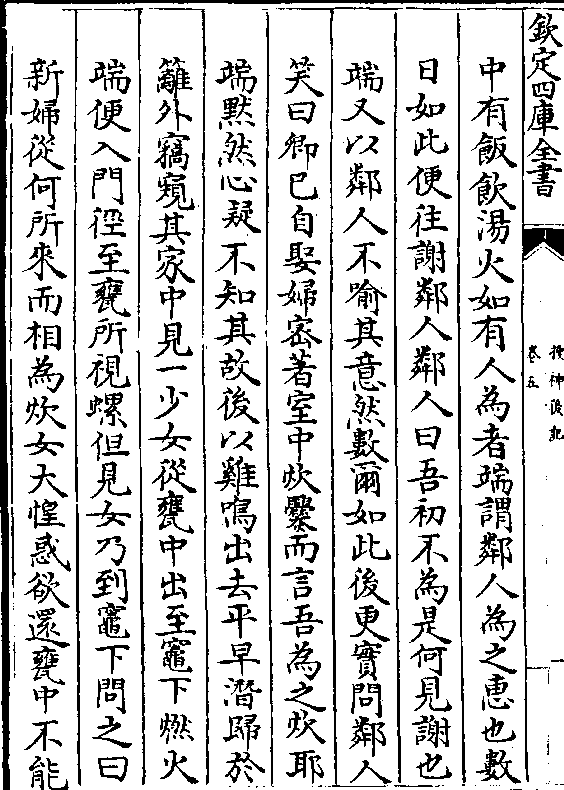 欽定四庫全書
搜神後記
卷五
一
中有飯飲湯火如有人為者端謂鄰人為之恵也數
日如此便往謝鄰人鄰人曰吾初不為是何見謝也
端又以鄰人不喻其意然數爾如此後更實問鄰人
笑曰卿已自娶婦宻著室中炊爨而言吾為之炊耶
端黙然心疑不知其故後以雞鳴出去平早潛歸於
籬外竊窺其家中見一少女從甕中出至竈下燃火
端便入門徑至甕所視螺但見女乃到竈下問之曰
新婦從何所來而相為炊女大惶惑欲還甕中不能